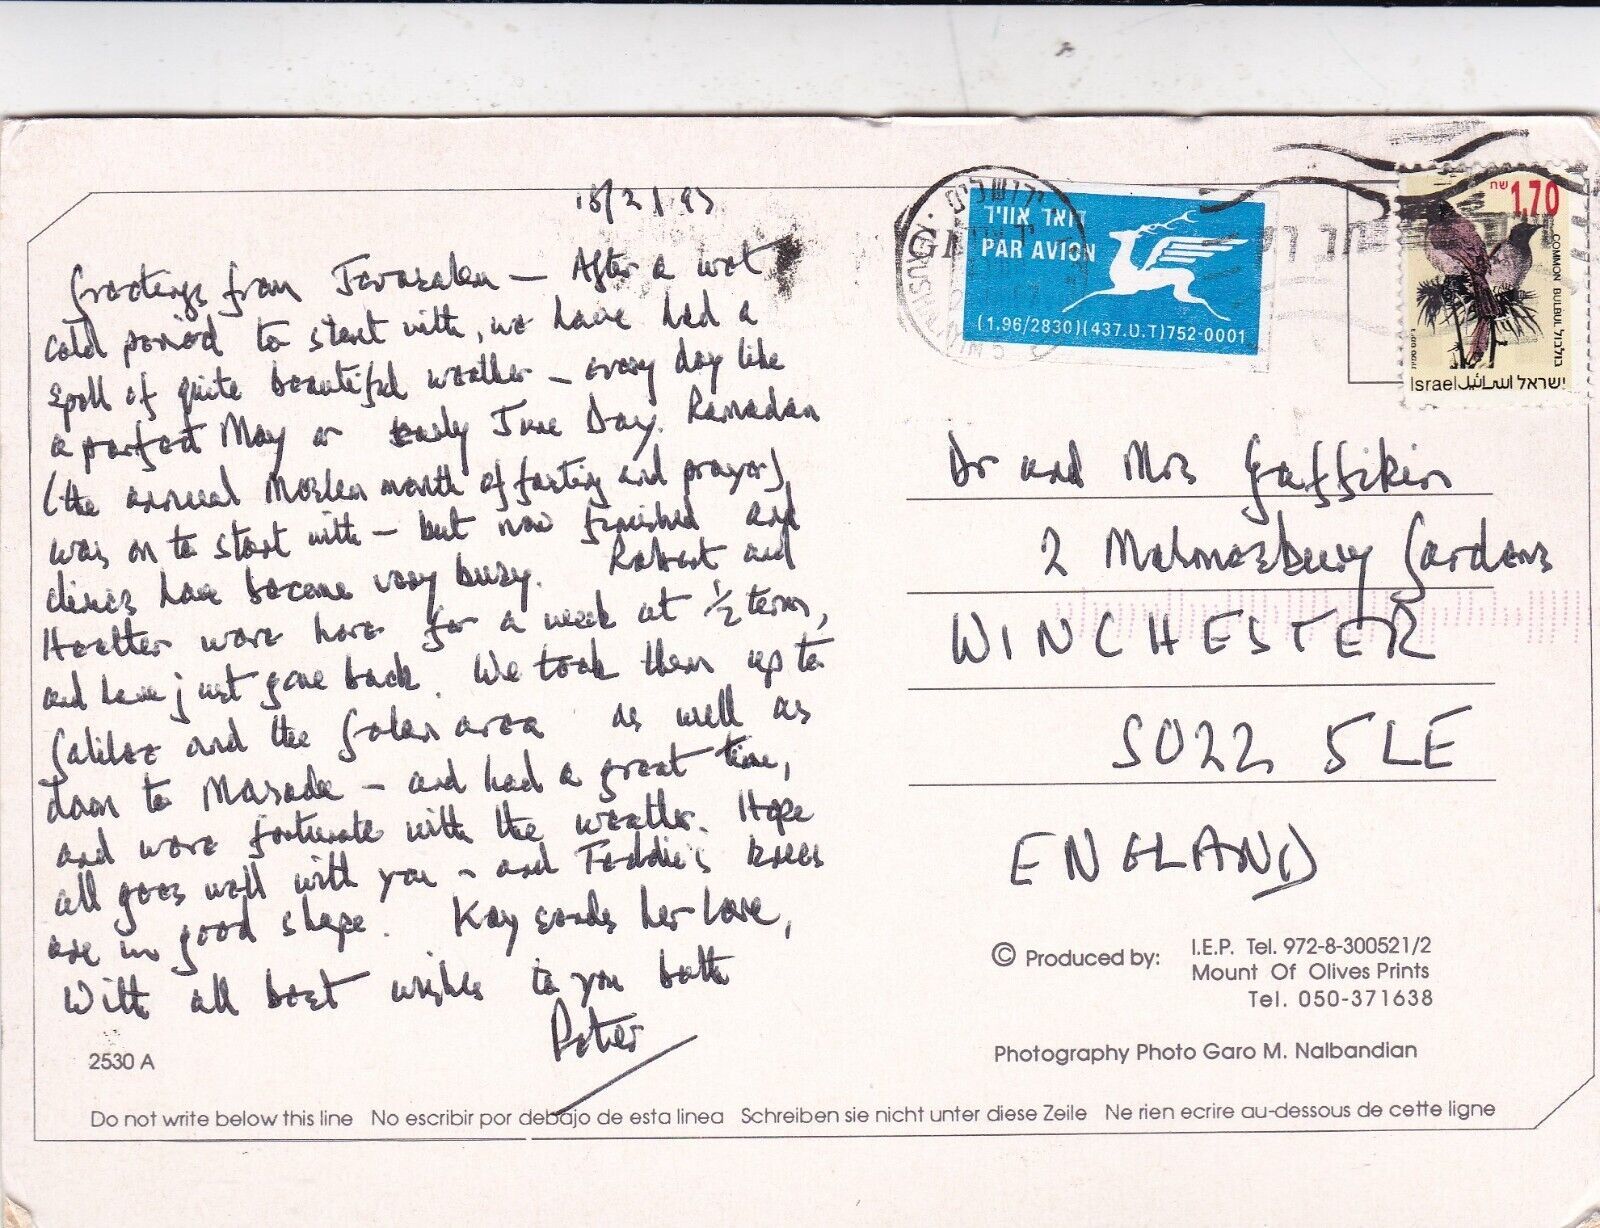 18/2/97
Greetings from Jerusalem — After a wet
cold period to start with, we have had a
spell of quite beautiful weather — every day like
a perfect May or early June Day. Ramadan
(the annual Moslem month of fasting and prayer)
was on to start with — but now finished and
have become very busy. Robert and
Heather were here for a week at 1/2 term,
and have just gone back. We took them up to
Galilee and the Golan area as well as
down to Masada — and had a great time,
and were fortunate with the weather. Hope
all goes well with you — and Teddie's knees
are in good shape. Kay sends her love,
With all best wishes to you both
Peter
2530 A
דואר אוויר
PAR AVION
(1.96/2830)(437.U.T)752-0001
ירושלים
JERUSALEM
1.70 שח
COMMON BULBUL בולבול
Israel اسرائيل ישראל
Dr and Mrs Gaffikin
2 Malmesbury Gardens
WINCHESTER
SO22 5LE
ENGLAND
© Produced by: I.E.P. Tel. 972-8-300521/2
Mount Of Olives Prints
Tel. 050-371638
Photography Photo Garo M. Nalbandian
Do not write below this line No escribir por debajo de esta linea Schreiben sie nicht unter diese Zeile Ne rien ecrire au-dessous de cette ligne